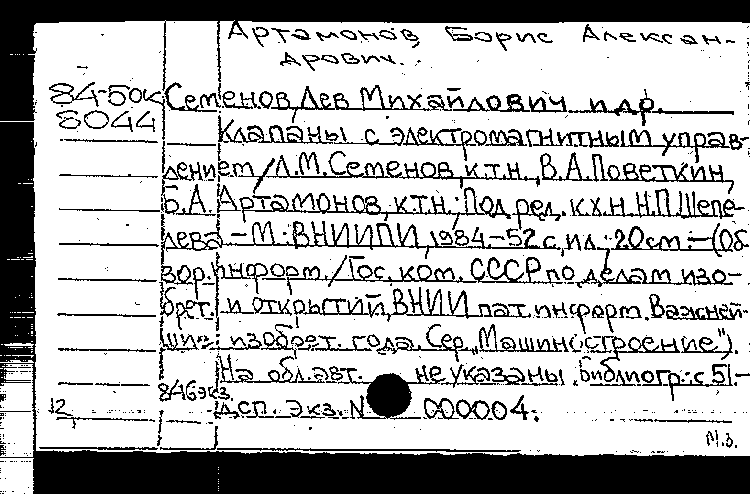 Артамонов Борис Алексан-
дрович.
84-50к Семенов, Лев Михайлович и др.
8044
Клапаны с электромагнитным управ-
лением / Л.М. Семенов, к.т.н., В.А. Поветкин,
Б.А. Артамонов, к.т.н.; Под ред. к.х.н. Н.П. Шепе-
лева – М.: ВНИИПИ, 1984. – 52 с., ил.; 20 см. – (Об
зор. информ. / Гос. ком. СССР по делам изо-
брет. и открытий, ВНИИ пат. информ. Важней-
шие изобрет. года. Сер. „Машиностроение").
На обл. авт. не указаны. Библиогр.: с. 51. –
846 экз.
12 ДСП. Экз. N 000004.
М.З.